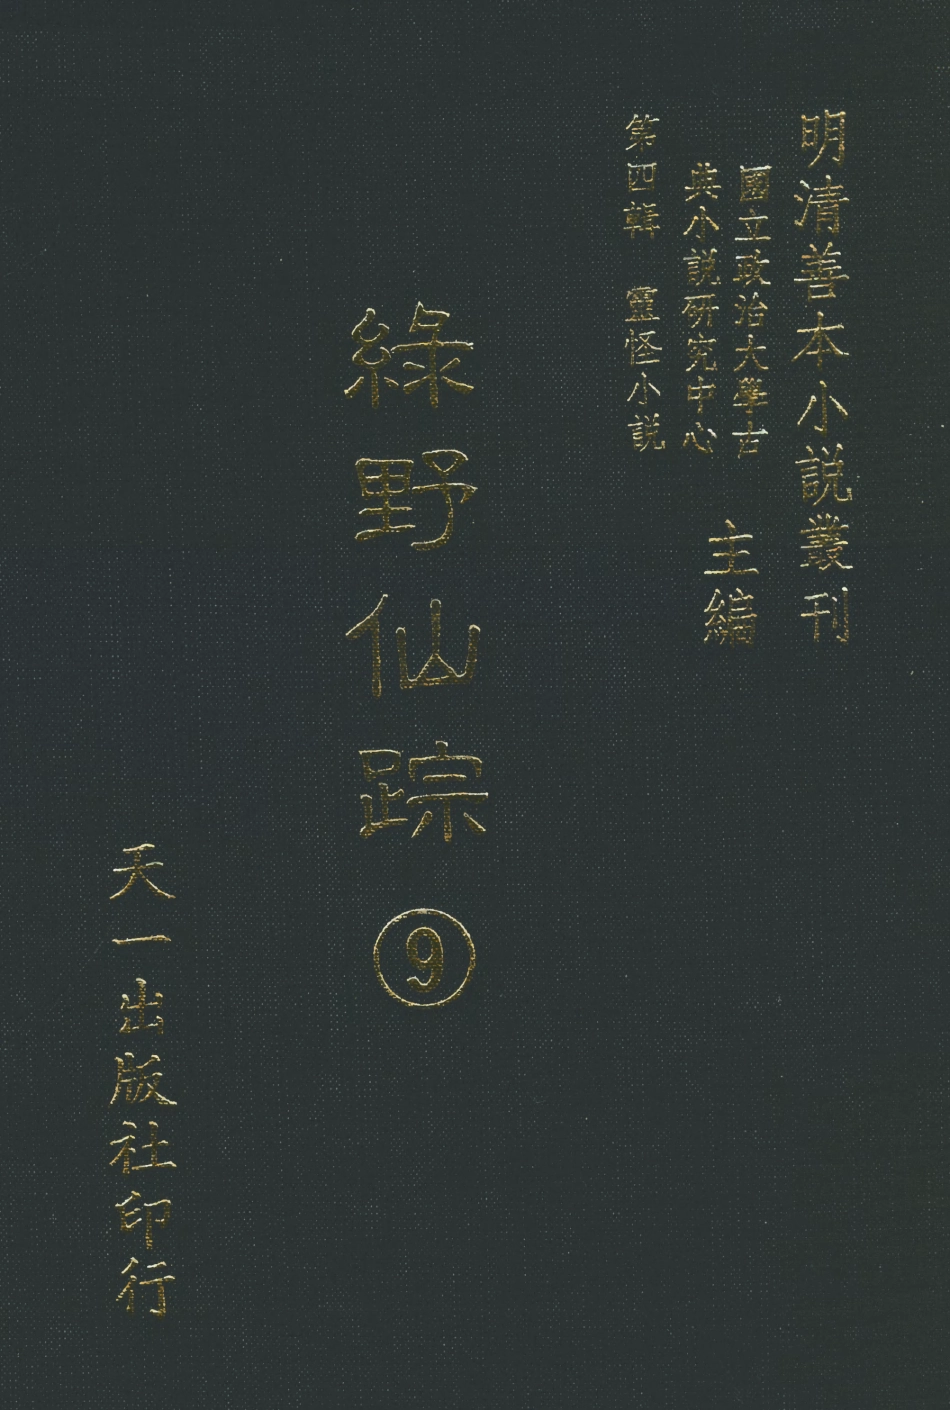 明清善本小説叢刊
國立政治大學古
典小説研究中心
主編
第四輯　靈怪小説
綠野仙踪⑨
天一出版社印行